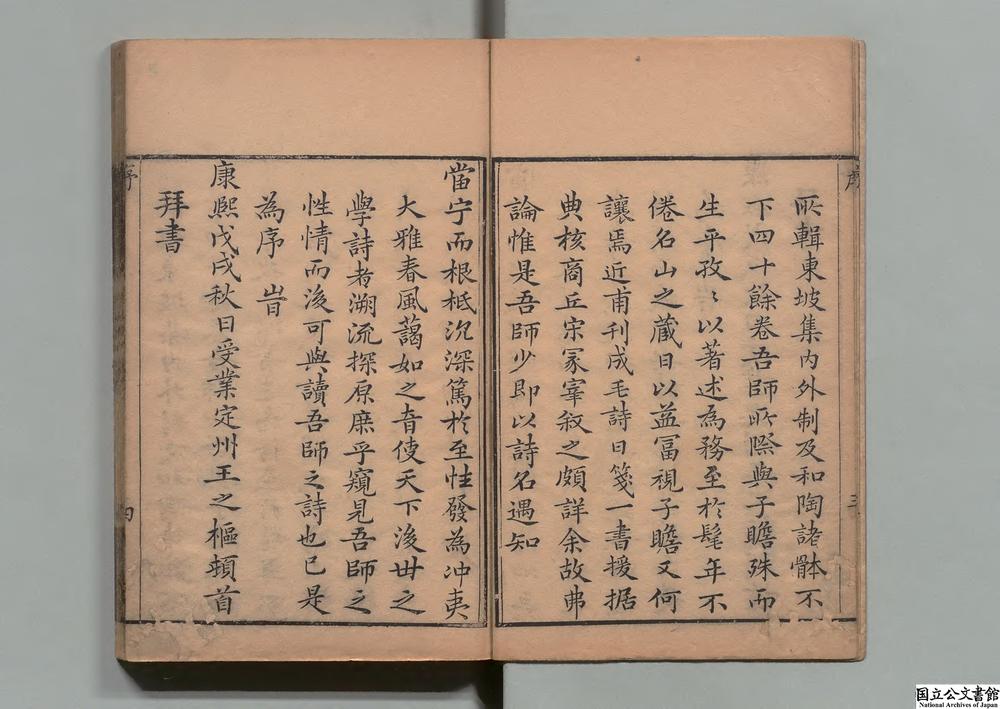 序
三
所輯東坡集内外制及和陶諸體不
下四十餘卷吾師所際與子瞻殊而
生平孜〻以著述為務至於髦年不
倦名山之藏日以益冨視子瞻又何
讓焉近甫刋成毛詩日箋一書援据
典核商丘宋冢宰叙之頗詳余故弗
論惟是吾師少即以詩名遇知
當宁而根柢沉深篤於至性發為冲夷
大雅春風藹如之音使天下後世之
學詩者溯流探原庶乎窺見吾師之
性情而後可與讀吾師之詩也已是
為序　旹
康熙戊戌秋日受業定州王之樞頓首
拜書
序
四
国立公文書館
National Archives of Japan